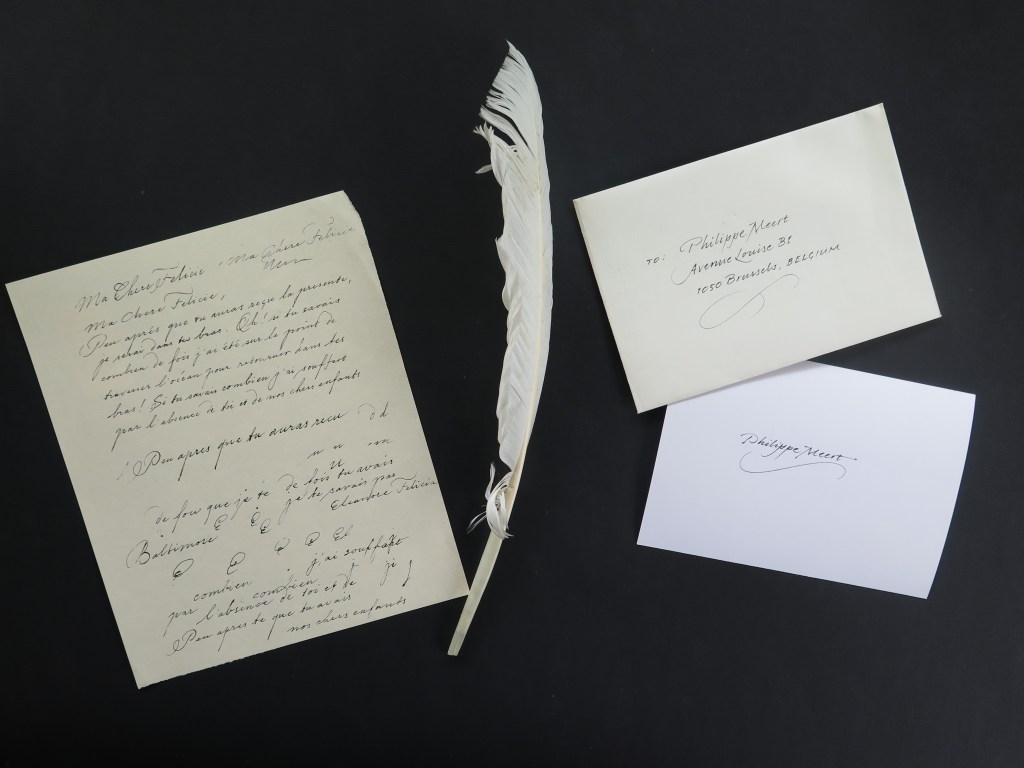 Ma Chere Felicie
Ma Chere Felicie
Ma Chere Felicie,
Peu après que tu auras reçu la presente,
je serai dans tes bras. Oh! si tu savais
combien de fois j'ai été sur le point de
traverser l'océan pour retourner dans tes
bras! Si tu savais combien j'ai souffert
par l'absence de toi et de nos chers enfants
Peu apres que tu auras recu d d
u u m
u
de fois tu avais
de que je te
je te savais pas
Baltimore E E
Eleanore Felicie
E E e e El
combien j'ai souffert
par combien ji j
l'absence de toi et de
Peu apres te que tu avais
nos chers enfants
TO: Philippe Meert
Avenue Louise 81
1050 Brussels, BELGIUM
Philippe Meert